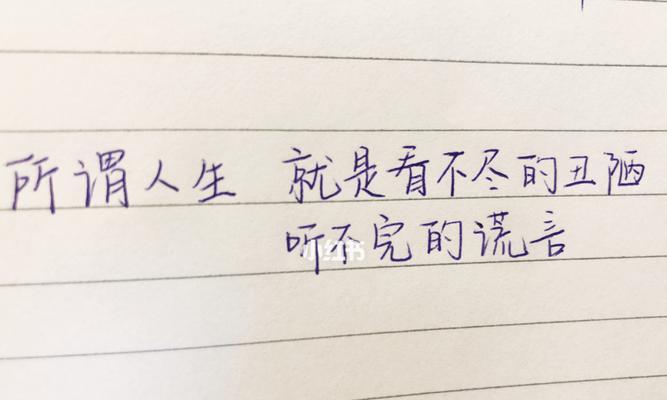 所谓人生 就是看不尽的丑陋
听不完的谎言
小红书